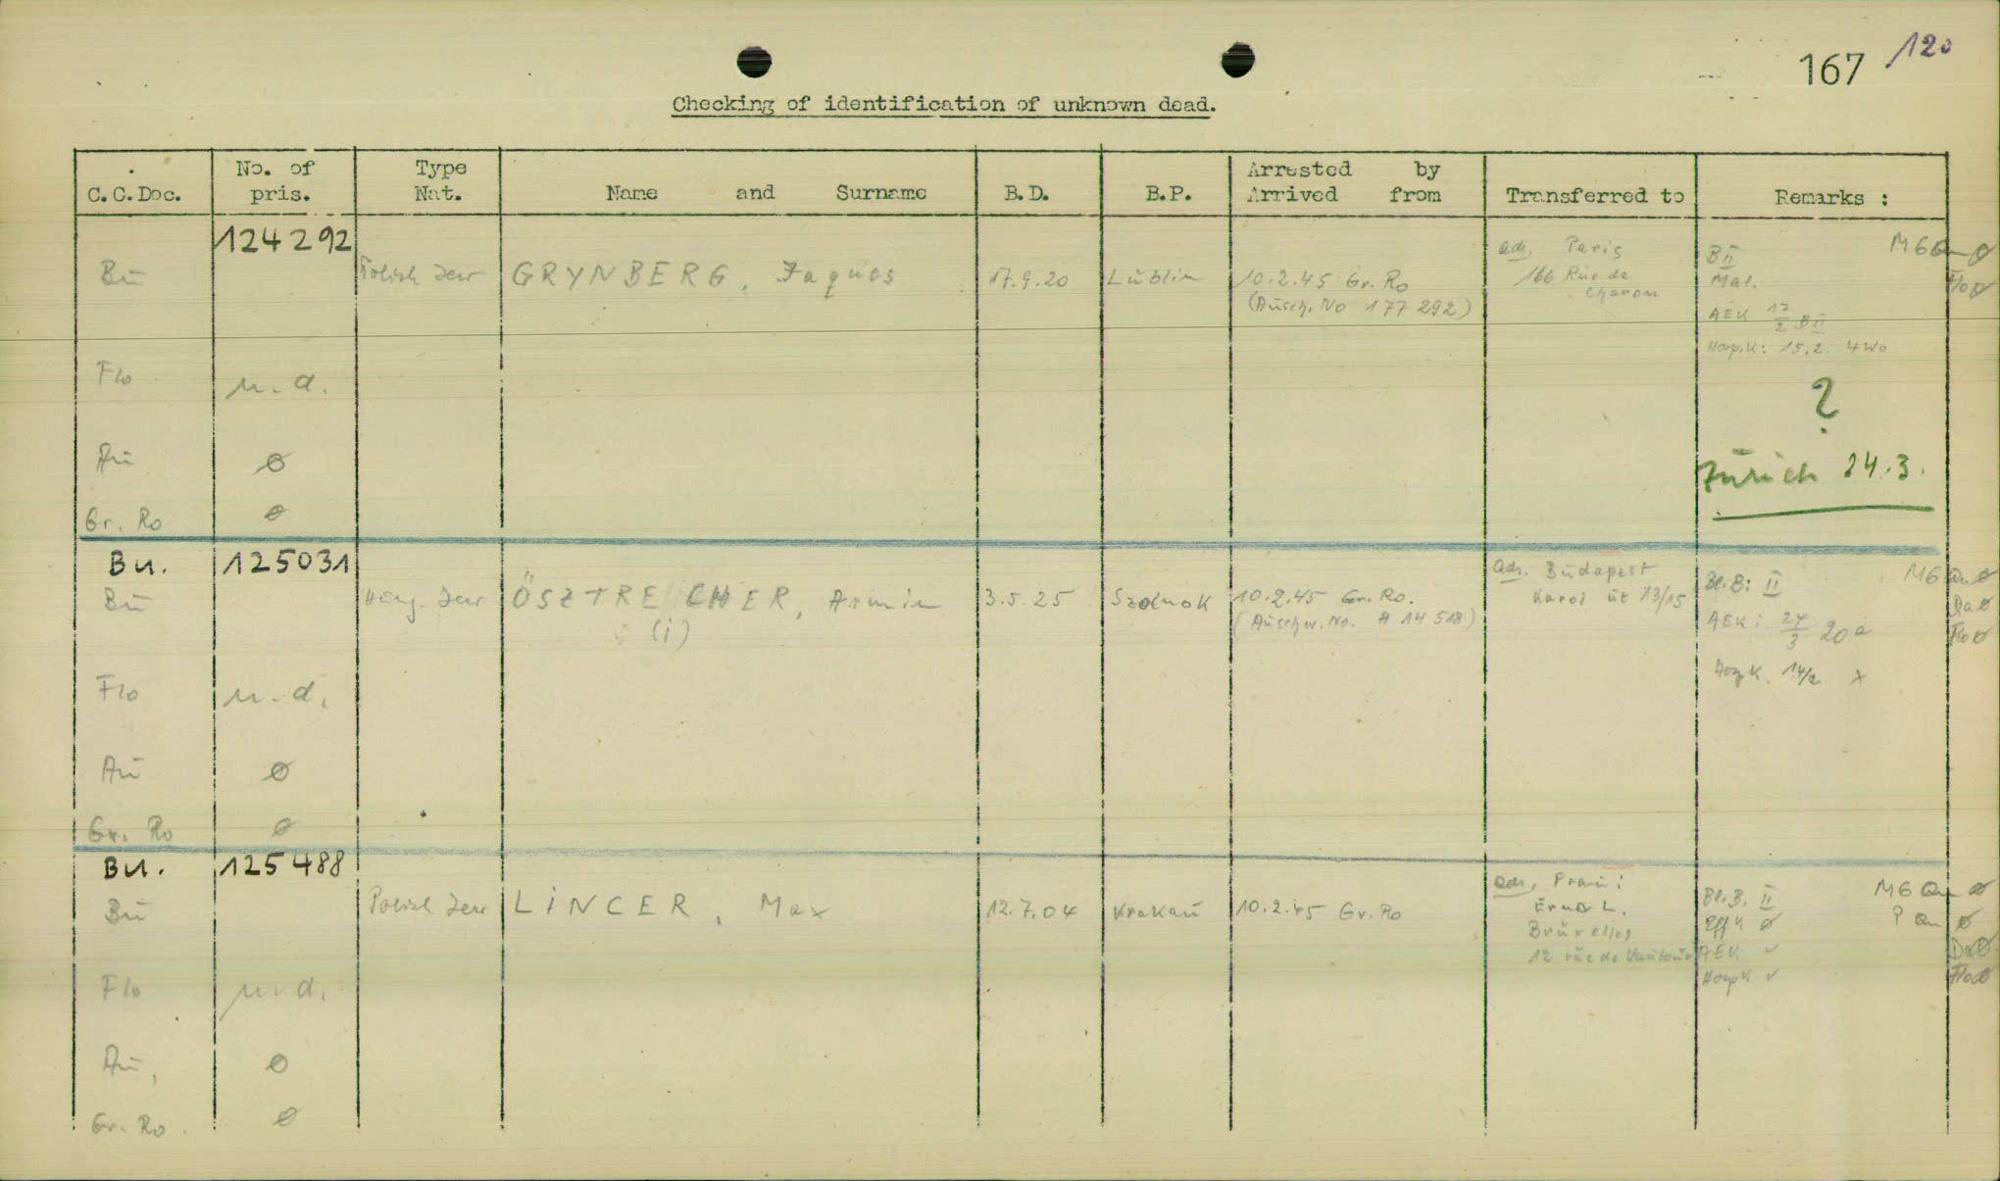 167 120
Checking of identification of unknown dead.
C.C.Doc.
No. of pris.
Type Nat.
Name and Surname
B.D.
B.P.
Arrested by
Arrived from
Transferred to
Remarks :
124292
Bū Polish Jew GRYNBERG, Jaques 17.9.20 Lūblin 10.2.45 Gr. Ro
(Aūsch. No 177292)
adr. Paris
166 Rūe de
Charon
BII M6 Qu ø
Mal. Flo ø
AEK 17/2 BII
Hosp.K: 15.2.
Flo n.d.
?
Aū ø
Zürich 24.3.
Gr. Ro ø
Bu. 125031
Bū Hūng. Jew ÖSZTREICHER, Armin 3.5.25 Szolnok 10.2.45 Gr. Ro.
(i) (Aūschw. No. A 14518)
adr. Būdapest
Karol ūt 13/15
Bl.B: II M6 Qu ø
Da ø
AEK: 24/3 20a Flo ø
Hosp K. 14/2 x
Flo n.d.
Aū ø
Gr. Ro ø
Bu. 125488
Bū Polish Jew LINCER, Max 12.7.04 Krakaū 10.2.45 Gr. Ro
adr. Fraū:
Erna L.
Brūxelles
12 rūe de
Bl.B. II M6 Qu ø
Eff K ø P Qu ø
AEK ✓ Da ø
Hosp K ✓ Flo ø
Flo n.d.
Aū, ø
Gr. Ro. ø